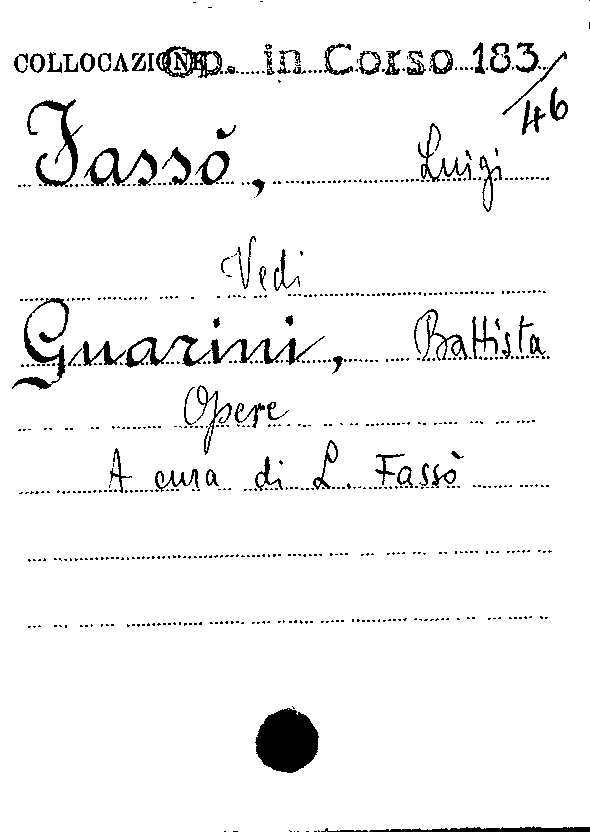 COLLOCAZIONE Op. in Corso 183/46
Fassò, Luigi
Vedi
Guarini, Battista
Opere
A cura di L. Fassò